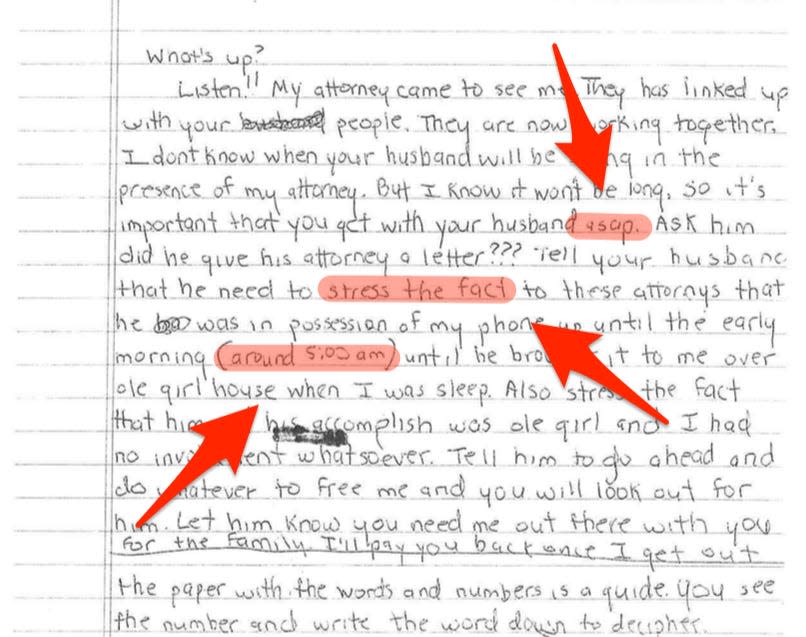 What's up?
Listen!! My attorney came to see me. They has linked up
with your people. They are now working together.
I dont know when your husband will be in the
presence of my attorney. But I know it won't be long, so it's
important that you get with your husband asap. Ask him
did he give his attorney a letter??? Tell your husband
that he need to stress the fact to these attornys that
he was in possession of my phone up until the early
morning (around 5:00 am) until he brought it to me over
ole girl house when I was sleep. Also stress the fact
that him his accomplish was ole girl and I had
no involvement whatsoever. Tell him to go ahead and
do whatever to free me and you will look out for
him. Let him know you need me out there with you
for the family I'll pay you back once I get out
the paper with the words and numbers is a guide. you see
the number and write the word down to decipher.